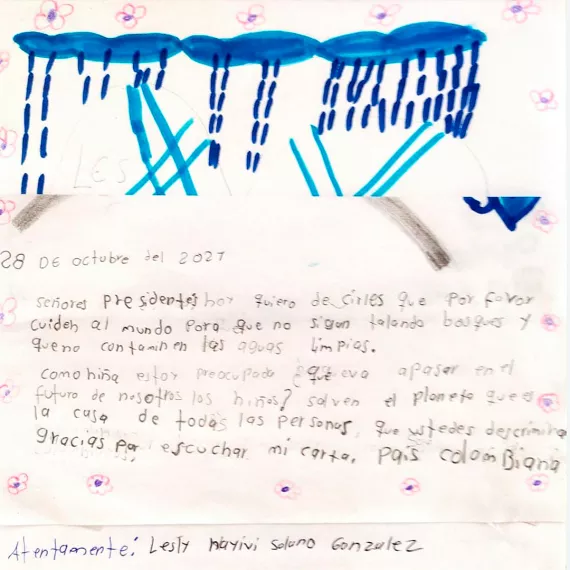 LES
28 DE octubre del 2021
señores presidentes hoy quiero decirles que por favor
cuiden al mundo para que no sigan talando bosques y
que no contaminen las aguas limpias.
como niña estoy preocupada ¿que va apasar en el
futuro de nosotros los niños? salven el planeta que es
la casa de todas las personas, que ustedes descrimina
gracias por escuchar mi carta, pais colombiana
Atentamente: Lesly Nayivi Solano Gonzalez